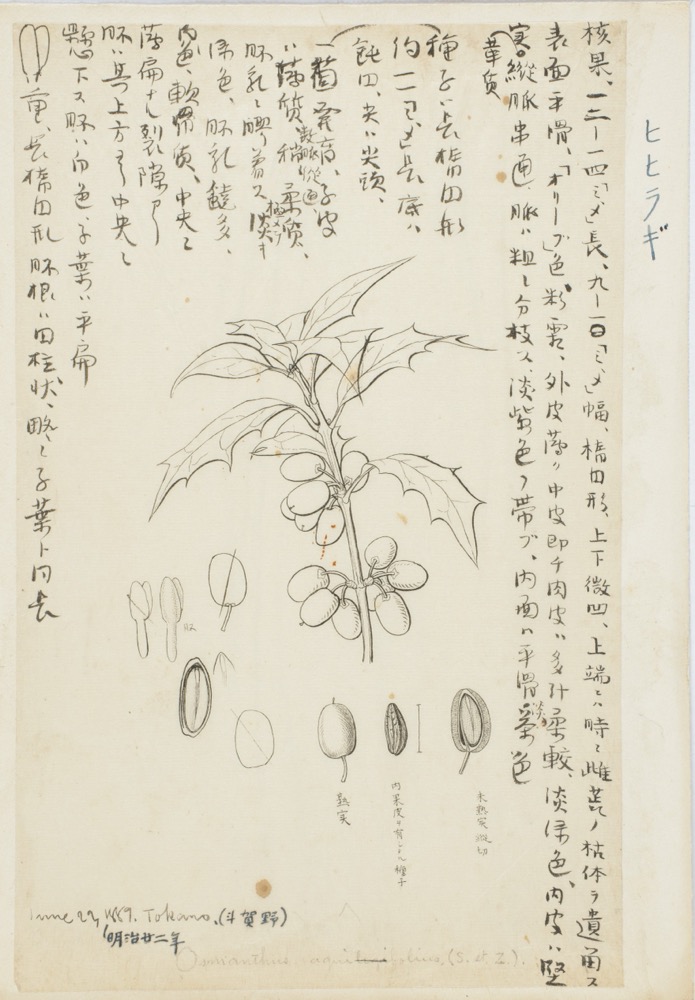 ヒヒラギ
核果、一三—一四「ミ、メ」長、九—一〇「ミ、メ」幅、楕円形、上下微凹、上端ニハ時ニ雌蕊ノ枯体ヲ遺角ス
表面平滑、「オリーブ」色粉霜、外皮薄ク中皮即チ肉皮ハ多汁柔軟、淡緑色、内皮ハ堅
縦脈串通、脈ハ粗ニ分枝ス、淡紫色ヲ帯ブ、内面ハ平滑 色
革質
種子ハ長楕円形
約一一「ミ、メ」長、底ハ
鈍円、尖ハ尖頭、
一箇発育、子皮
ハ薄質、稍柔質、
数脈縦通
胚乳ニ 着ス 淡
緑色、胚乳饒多、
肉色、軟骨質、中央ニ
薄扁ナル裂隙アリ
胚ハ其上方ヨリ中央ニ
懸下ス胚ハ白色、子葉ハ平扁
重、長楕円形 胚根ハ円柱状、略ニ子葉ト同長
未熟実縦切
内果皮ヲ有スル種子
熟実
June 22, 1889. Tokano. (斗賀野)
明治廿二年
Osmanthus (S. et Z.).